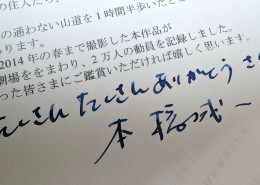 の住人たち
の通わない山道を1時間半歩いたと
ります。
2014年の春まで撮影した本作品が
劇場ををまわり、2万人の動員を記録しました。
った皆さまにご鑑賞いただければ嬉しく思います。
たくさん たくさん ありがとう
本 橋 成 一